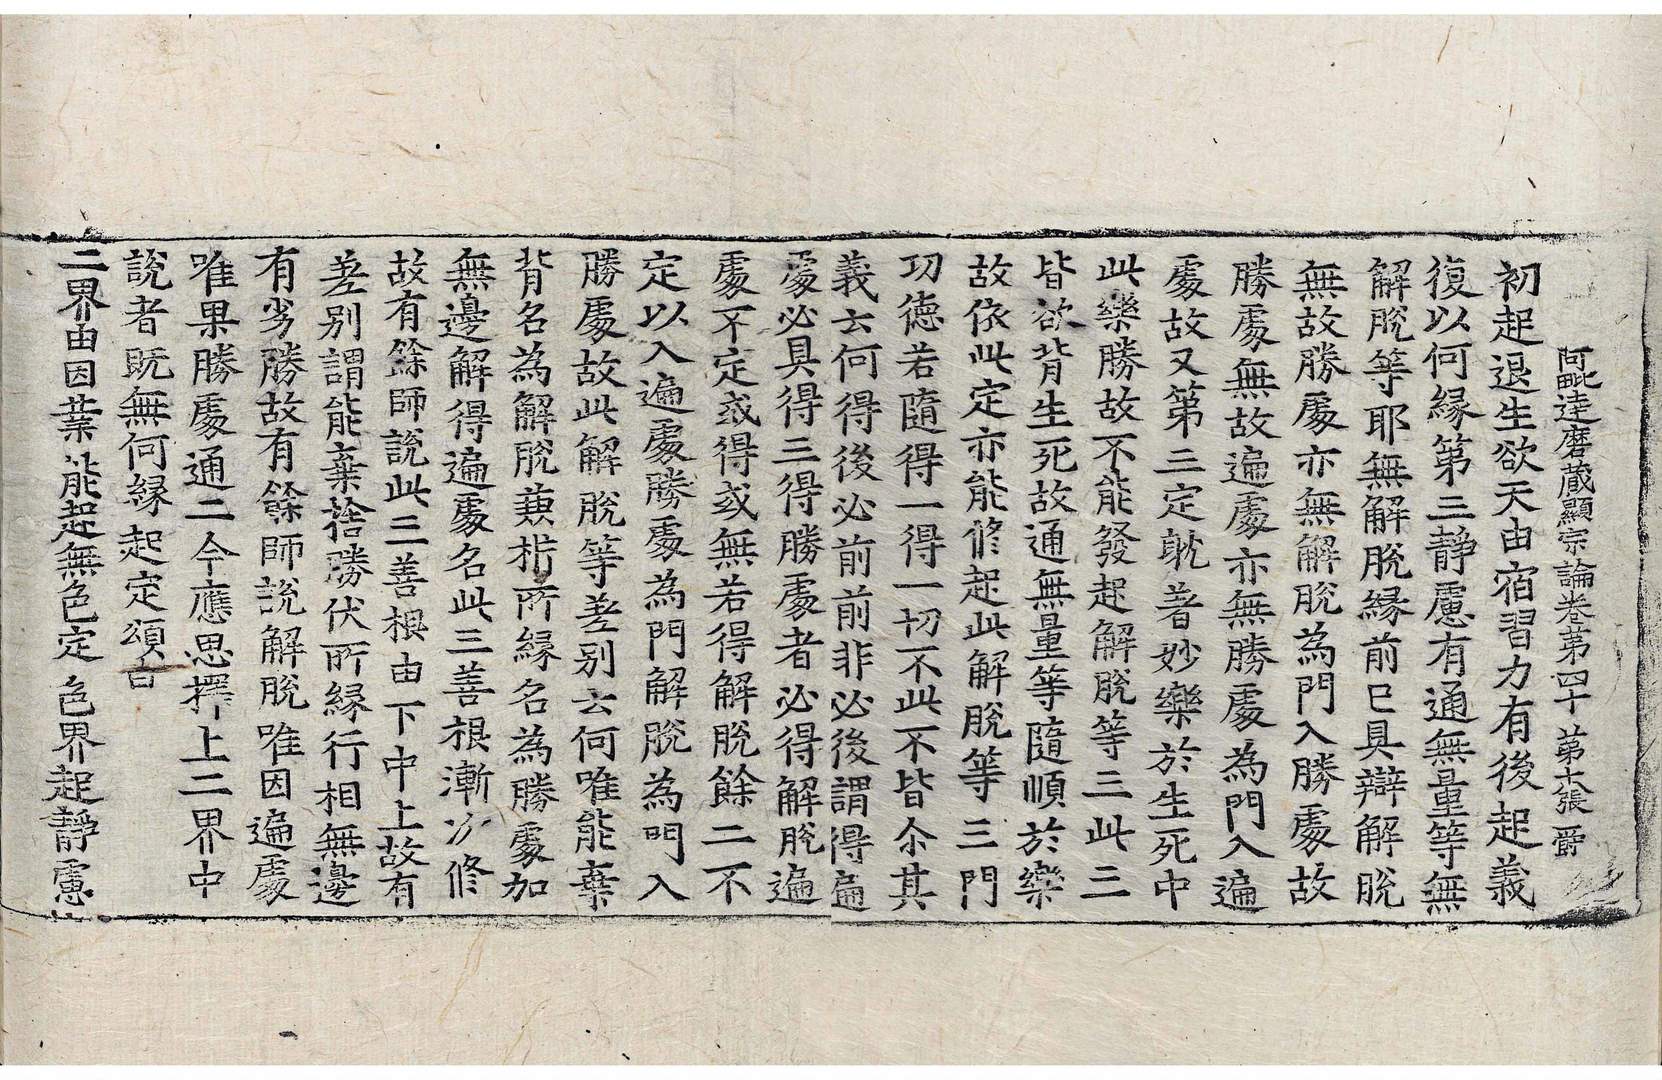 阿毗達磨藏顯宗論卷第四十 第十張 爵
初起退生欲天由宿習力有後起義
復以何緣第三靜慮有通無量等無
解脫等耶無解脫緣前已具辯解脫
無故勝處亦無解脫為門入勝處故
勝處無故遍處亦無勝處為門入遍
處故又第三定躭著妙樂於生死中
此樂勝故不能發起解脫等三此三
皆欲背生死故通無量等隨順於樂
故依此定亦能修起此解脫等三門
功德若隨得一得一切不此不皆尒其
義云何得後必前前非必後謂得遍
處必具得三得勝處者必得解脫遍
處不定或得或無若得解脫餘二不
定以入遍處勝處為門解脫為門入
勝處故此解脫等差別云何唯能棄
背名為解脫兼析所緣名為勝處加
無邊解得遍處名此三善根漸次修
故有餘師說此三善根由下中上故有
差別謂能棄捨勝伏所緣行相無邊
有劣勝故有餘師說解脫唯因遍處
唯果勝處通二今應思擇上二界中
說者既無何緣起定頌曰
二界由因業 能起無色定 色界起靜慮